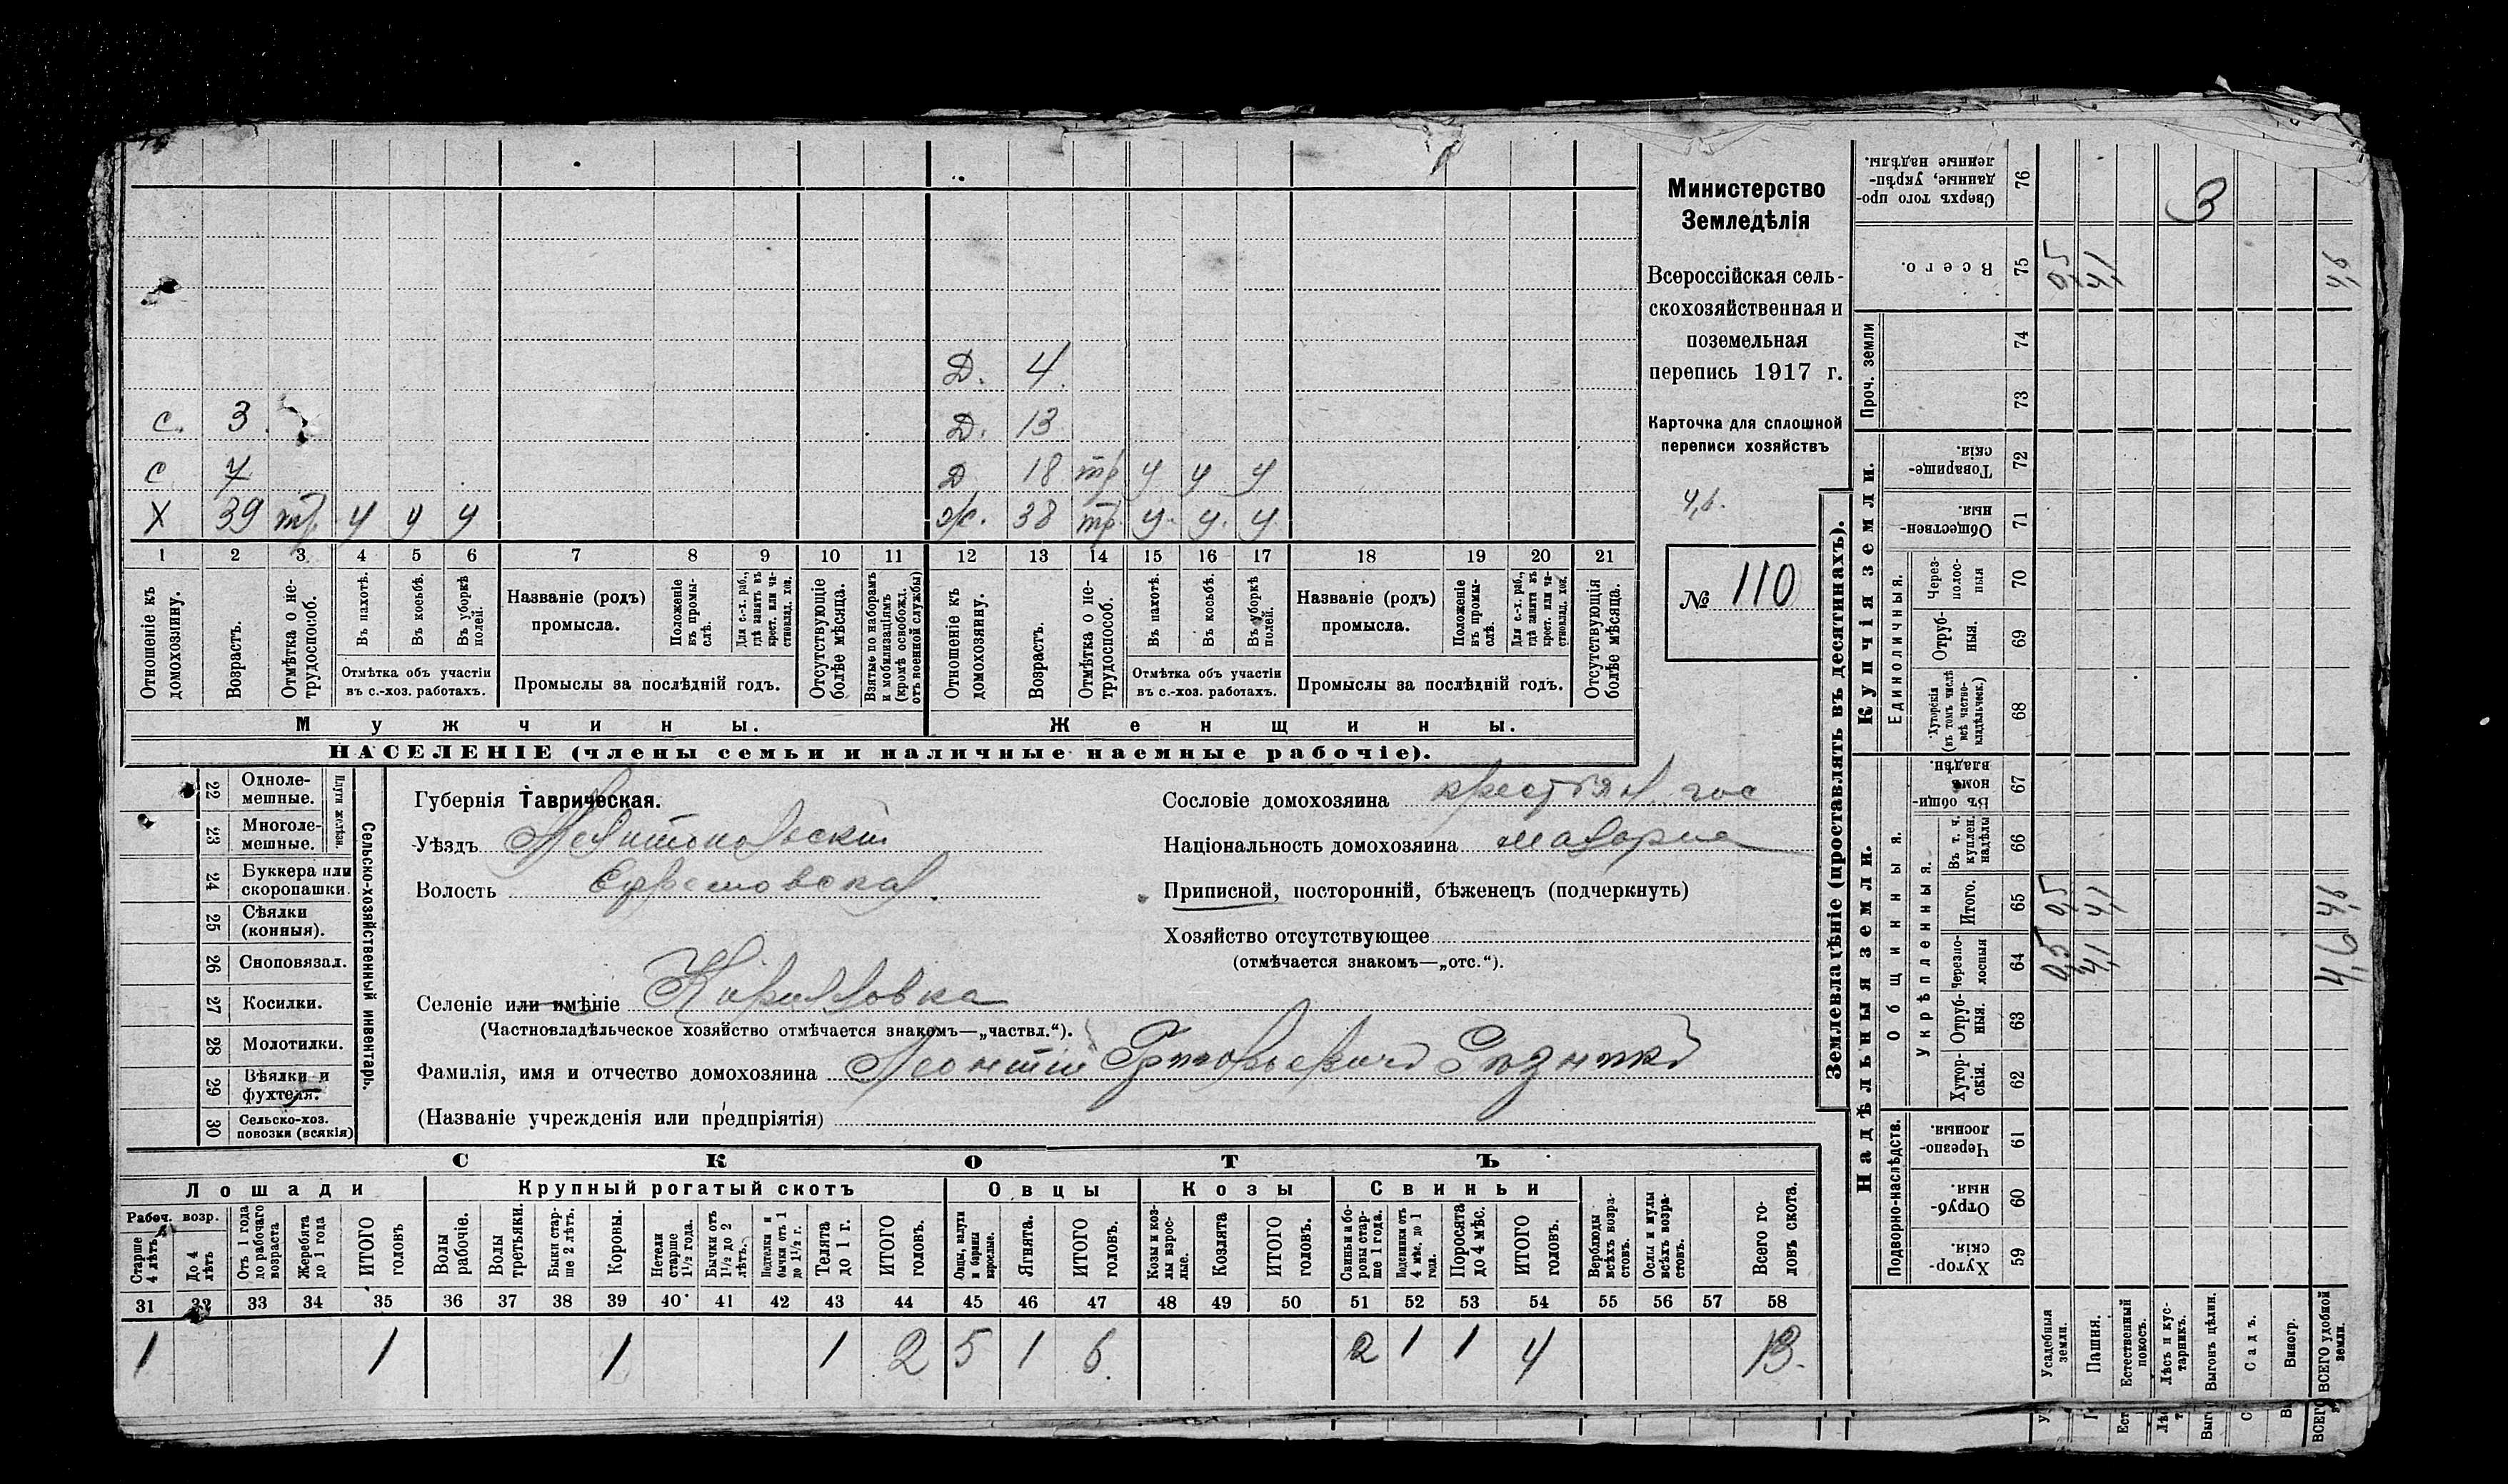 Министерство
Земледѣлія
Всероссійская сель-
скохозяйственная и
поземельная
перепись 1917 г.
Карточка для сплошной
переписи хозяйствъ
4,6.
№ 110
Д. 4
С. 3 Д. 13
С 7 Д 18 тр У У У
Х 39 тр. У У У Ж. 38 тр. У. У. У
1 2 3 4 5 6 7 8 9 10 11 12 13 14 15 16 17 18 19 20 21
Отношеніе къ домохозяину.
Возрастъ.
Отмѣтка о не-трудоспособ.
Въ пахотѣ.
Въ косьбѣ.
Въ уборкѣ полей.
Отмѣтка объ участіи въ с.-хоз. работахъ.
Названіе (родъ) промысла.
Положеніе въ промы-слѣ.
Для с.-х. раб., гдѣ занятъ въ крест. или ча-стновлад. хоз.
Промыслы за послѣдній годъ.
Отсутствующіе болѣе мѣсяца.
Взятые по наборамъ и мобилизаціямъ (кромѣ освобожд. отъ военной службы)
Отношеніе къ домохозяину.
Возрастъ.
Отмѣтка о не-трудоспособ.
Въ пахотѣ.
Въ косьбѣ.
Въ уборкѣ полей.
Отмѣтка объ участіи въ с.-хоз. работахъ.
Названіе (родъ) промысла.
Положеніе въ промы-слѣ.
Для с.-х. раб., гдѣ занята въ крест. или ча-стновлад. хоз.
Промыслы за послѣдній годъ.
Отсутствующія болѣе мѣсяца.
Мужчины. Женщины.
НАСЕЛЕНІЕ (члены семьи и наличные наемные рабочіе).
Сельско-хозяйственный инвентарь.
Плуги желѣзн.
22 Одноле-мешные.
23 Многоле-мешные.
24 Буккера или скоропашки.
25 Сѣялки (конныя).
26 Сноповязал.
27 Косилки.
28 Молотилки.
29 Вѣялки и фухтеля.
30 Сельско-хоз. повозки (всякія)
Губернія Таврическая.
Уѣздъ Мелитопольскій
Волость Ефремовская
Селеніе или имѣніе Кирилловка
(Частновладѣльческое хозяйство отмѣчается знакомъ—„частвл.“).
Фамилія, имя и отчество домохозяина Леонтій Григорьевичъ
(Названіе учрежденія или предпріятія)
Сословіе домохозяина крестьян. гос
Національность домохозяина малорос
Приписной, посторонній, бѣженецъ (подчеркнуть)
Хозяйство отсутствующее
(отмѣчается знакомъ—„отс.“).
СКОТЪ
Лошади Крупный рогатый скотъ Овцы Козы Свиньи
Рабоч. возр.
Старше 4 лѣтъ
До 4 лѣтъ
Отъ 1 года до рабочаго возраста
Жеребята до 1 года
ИТОГО головъ
Волы рабочіе.
Волы третьяки.
Быки стар-ше 2 лѣтъ.
Коровы.
Нетели старше 1½ года.
Бычки отъ 1½ до 2 лѣтъ.
Подтелки и бычки отъ 1 до 1½ г.
Телята до 1 г.
ИТОГО головъ.
Овцы, валухи и бараны взрослые.
Ягнята.
ИТОГО головъ.
Козы и коз-лы взрос-лые.
Козлята
ИТОГО головъ.
Свиньи и бо-ровы стар-ше 1 года.
Подсвинки отъ 4 мѣс. до 1 года.
Поросята до 4 мѣс.
ИТОГО головъ.
Верблюды всѣхъ возра-стовъ.
Ослы и мулы всѣхъ возра-стовъ.
Всего го-ловъ скота.
31 32 33 34 35 36 37 38 39 40 41 42 43 44 45 46 47 48 49 50 51 52 53 54 55 56 57 58
1 1 1 1 2 5 1 6. 2 1 1 4 13.
Землевладѣніе (проставлять въ десятинахъ).
Надѣльныя земли. Купчія земли. Проч. земли
Подворно-наслѣдств.
Общинныя.
Укрѣпленныя.
Единоличныя.
59 Хутор-скія.
60 Отруб-ныя.
61 Черезпо-лосныя.
62 Хутор-скія.
63 Отруб-ныя.
64 Черезпо-лосныя 0,5 4,1 4,6
65 Итого. 0,5 4,1 4,6
66 Въ т. ч. куплен. надѣлы
67 Въ общи-номъ владѣн.
68 Хуторскія (въ томъ числѣ всѣ частно-владѣльческ.)
69 Отруб-ныя.
70 Через-полос-ныя
71 Обществен-ныя.
72 Товарище-скія.
73
74
75 Всего. 0,5 4,1 4,6
76 Сверхъ того про-данные, укрѣп-ленные надѣлы. 3
Усадебныя земли.
Пашня.
Естественный покосъ.
Лѣсъ и кус-тарникъ.
Выгонъ цѣлин.
Садъ.
Виногр.
ВСЕГО удобной земли.